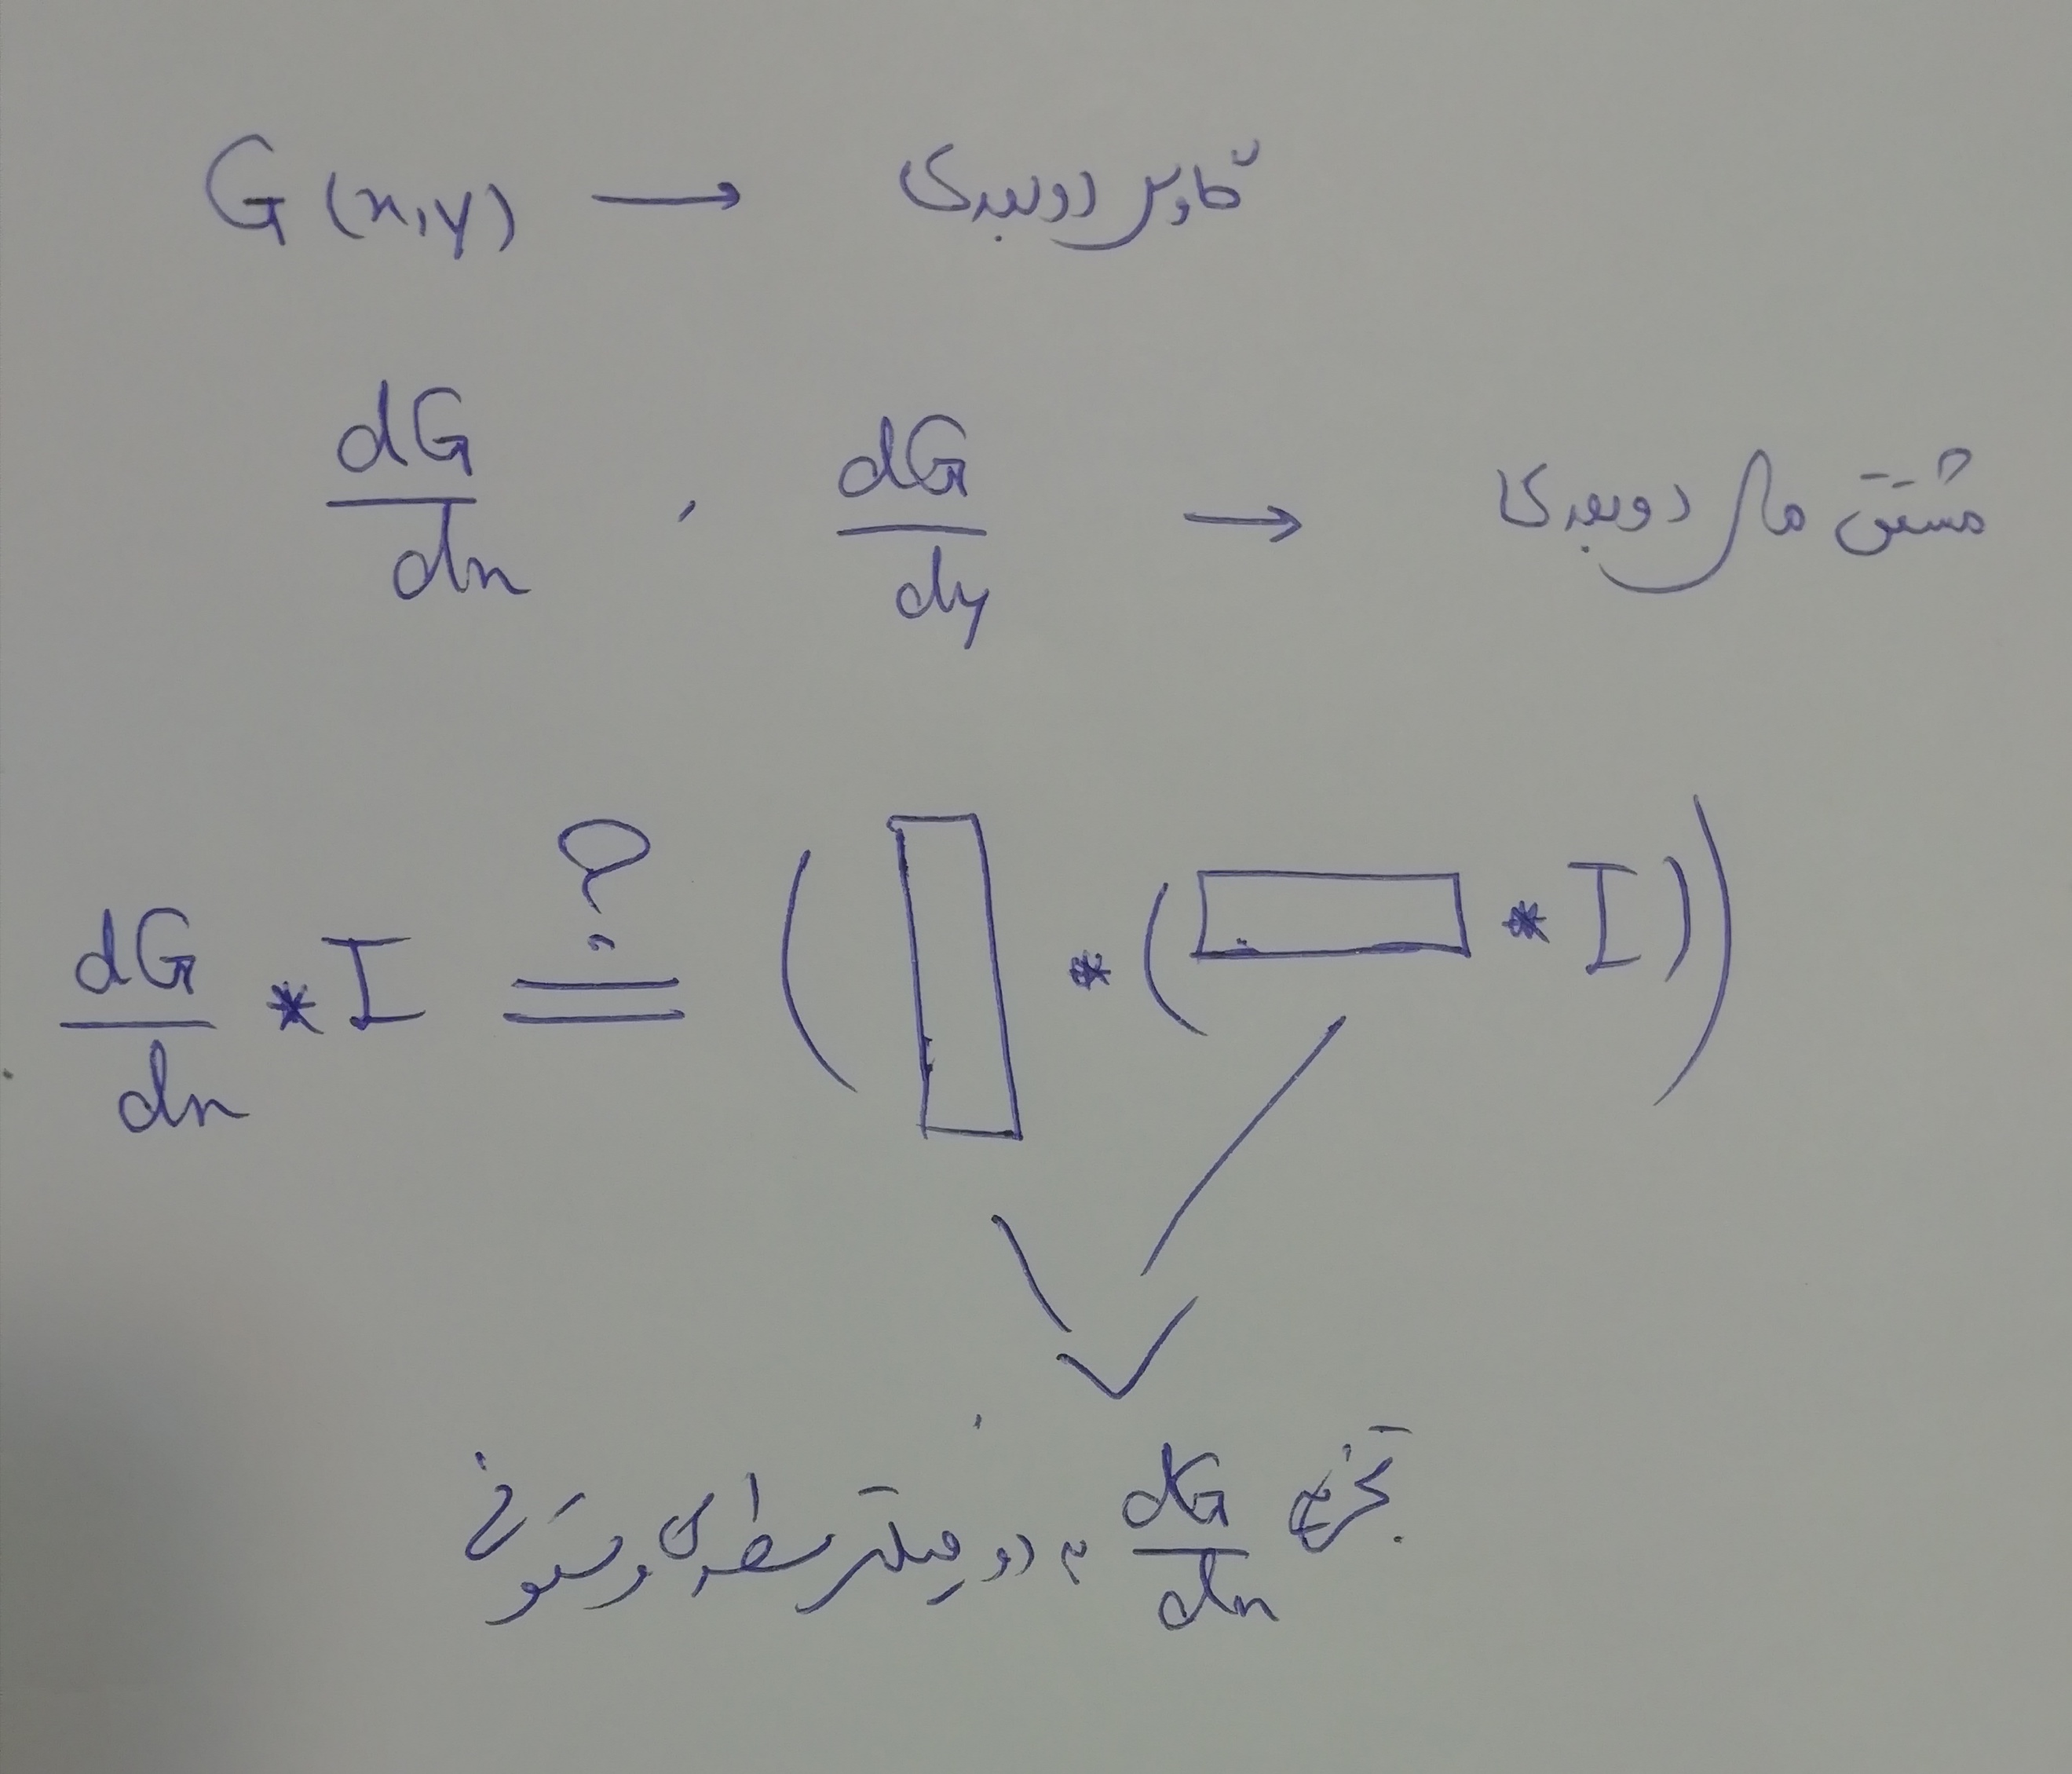 G(x,y) → گاوس دوبعدی
dG/dx , dG/dy → مشتق های دوبعدی
dG/dx * I =? ( * ( * I))
تجزیه dG/dx به دو فیلتر سطری و ستونی